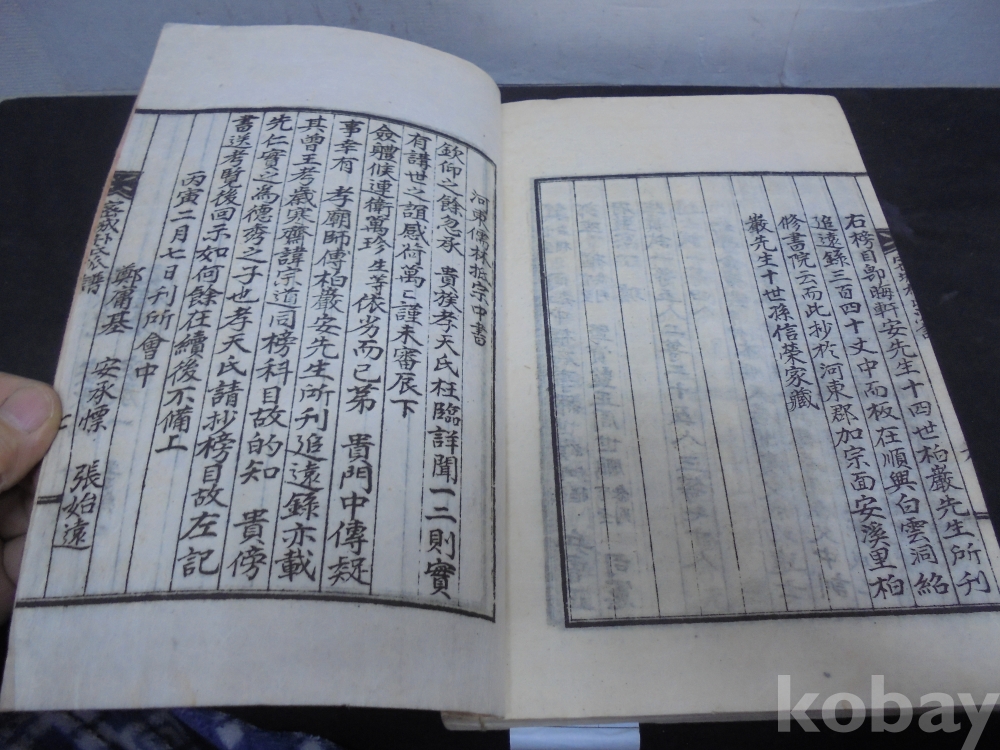 石榜目即晦軒安先生十四世柏巖先生所刊
追遠錄三百四十丈中而板在順興白雲洞紹
修書院云而此抄於河東郡加宗面安溪里柏
巖先生十世孫信榮家藏
河東儒林抵宗中書
欽仰之餘忽承 貴族孝天氏枉臨詳聞一二則實
有講世之誼感荷萬〻謹未審展下
僉軆候連衛萬珍生等依劣而已第 貴門中傳疑
事幸有 孝廟師傅柏巖安先生所刊追遠錄亦載
其曾王考歲寒齋諱宗道同榜科目故的知 貴傍
先仁實之為德秀之子也孝天氏請抄榜目故左記
書送考覽後回示如何餘在續後不備上
丙寅二月七日刊所會中
鄭甫基 安承慓 張始遠
密城朴家譜
kobay